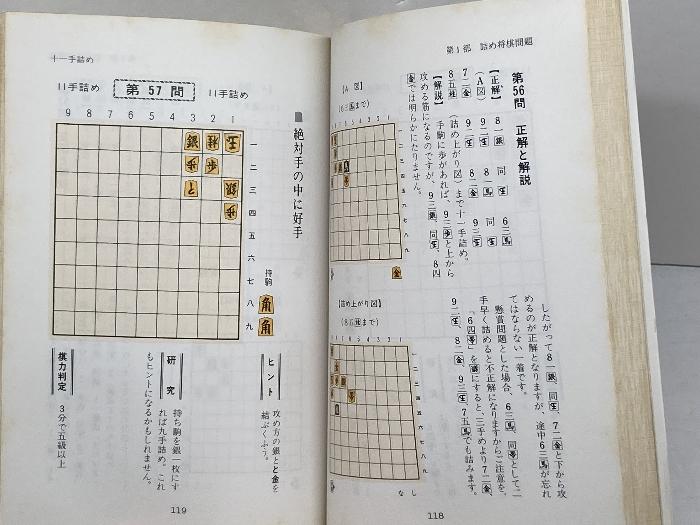 第1部 詰め将棋問題
第56問 正解と解説
【正解】 8一銀 同玉 6三馬
9二玉 8一馬 同玉
(A図) 9二玉 8二金 9三玉
7二金
8五桂 (詰め上がり図)まで十一手詰め。
【解説】 手駒に歩があれば、9三歩と上から
攻める筋になるのですが、9三銀、同玉、8四
金では明らかにたりません。
【A 図】
(6三馬まで)
したがって8一銀、同玉、7二金と下から攻
めるのが正解となりますが、途中6三馬が忘れ
てはならない一着です。
懸賞問題とした場合、6三馬、同香として二
手早く詰めると不正解になりますからご注意を。
「6四香」を銀にすると、三手めより7二金、
9二玉、8二金、9三玉、7五馬でも詰みます。
【詰め上がり図】
(8五桂まで)
なし
118
十一手詰め
11手詰め 第57問 11手詰め
■絶対手の中に好手
9 8 7 6 5 4 3 2 1
一
二
三
四
五
六
七
八
九
持駒 角角
ヒント
攻め方の銀とと金を
結ぶくふう。
研究
持ち駒を銀一枚にす
れば九手詰め。これ
もヒントになるかもしれません。
棋力判定
3分で五級以上
119